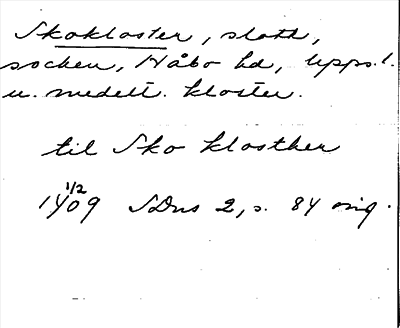 Skokloster, slott,
socken, Håbo hd, Upps. l.
u. medelt. kloster.
til Sko klosther
1/2
1409 SDns 2, s. 84 orig.